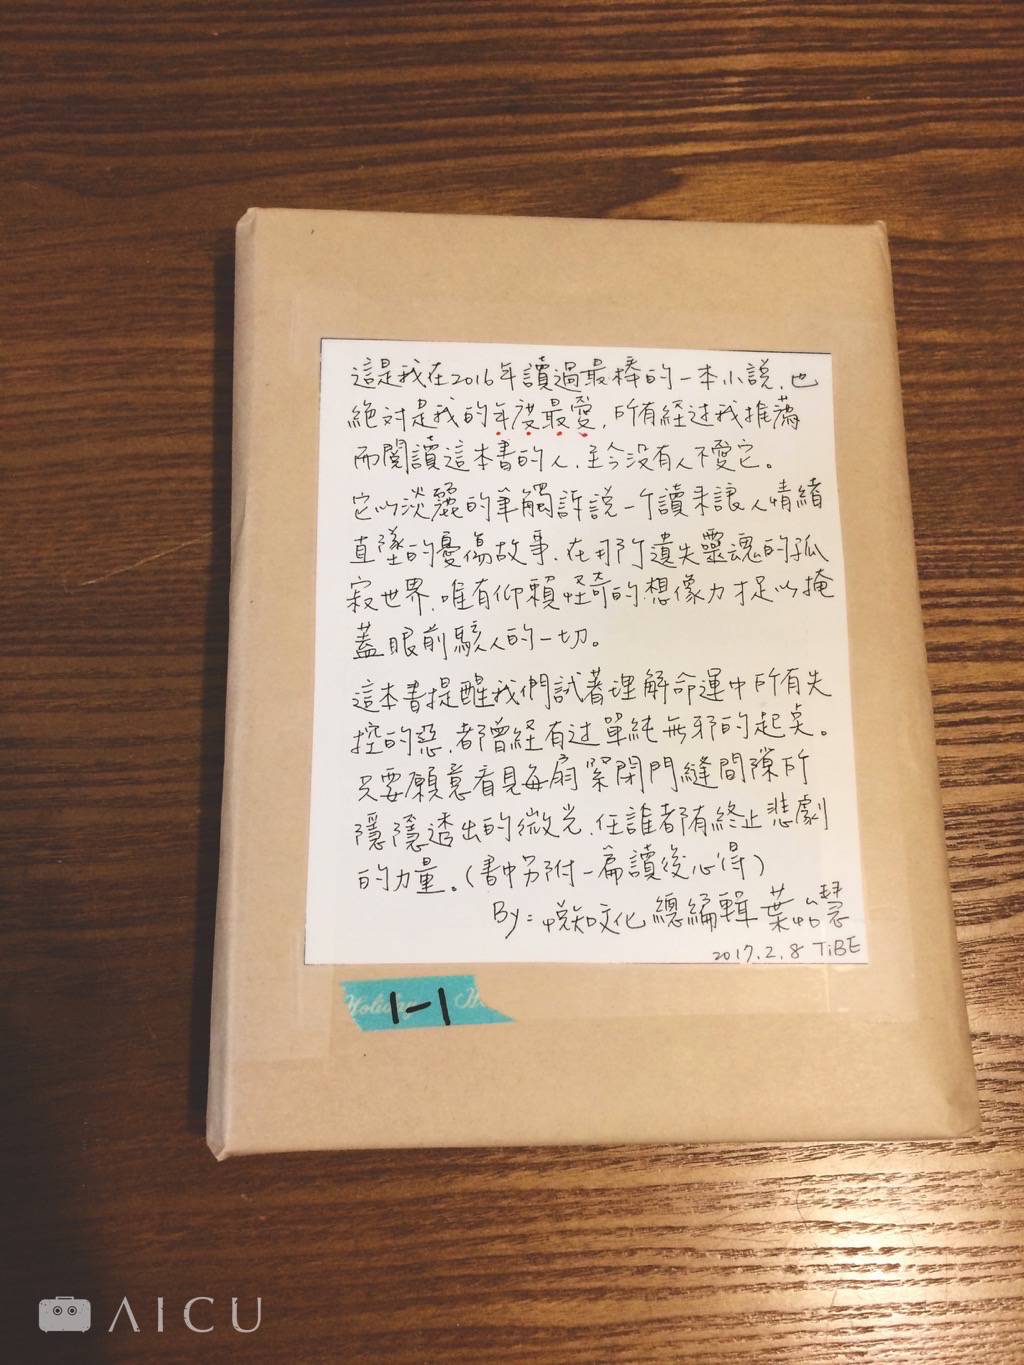 這是我在2016年讀過最棒的一本小說,也
絕對是我的年度最愛,所有經过我推薦
而閱讀這本書的人,至今沒有人不愛它。
它以淡麗的筆觸訴說一个讀來讓人情緒
直墜的憂傷故事,在那所遺失靈魂的孤
寂世界,唯有仰賴怪奇的想像力才足以掩
蓋眼前駭人的一切。
這本書提醒我們試著理解命運中所有失
控的惡,都曾経有过單純無邪的起点。
只要願意看見每扇緊閉門縫間隙所
隱隱透出的微光,任誰都有終止悲劇
的力量。(書中另附一篇讀後心得)
By=悅知文化 總編輯 葉怡慧
2017.2.8 TiBE
Holiday
1-1
AICU